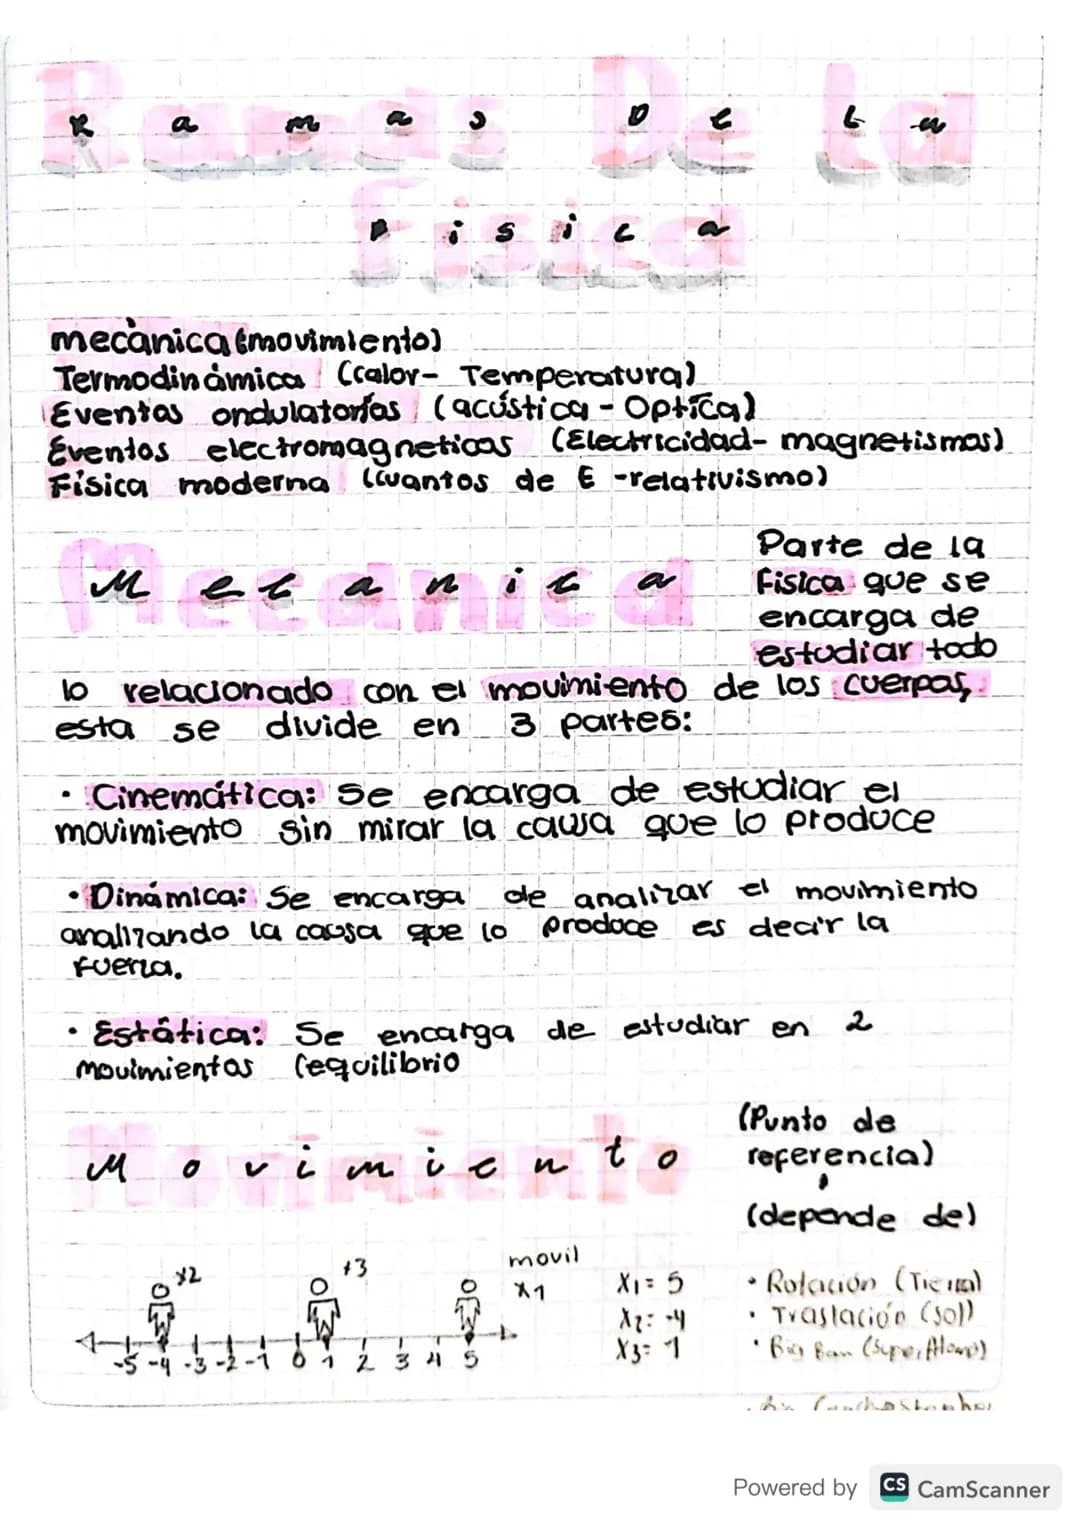 Ramas De La
Fisica
mecànica (movimiento)
Termodinámica (calor- Temperatura)
Eventos ondulatorios (acústica - Optica)
Eventos electromagneticos (Electricidad- magnetismos)
Física moderna (cuantos de E -relativismo)
Mecanica
Parte de la
Fisica que se
encarga de
estudiar todo
lo relacionado con el movimiento de los cuerpos,
esta se divide en 3 partes:
• Cinemática: Se encarga de estudiar el
movimiento sin mirar la causa que lo produce
• Dinámica: Se encarga de analizar el movimiento
analizando la causa que lo produce es decir la
fuerza.
• Estática: Se encarga de estudiar en 2
movimientos (equilibrio
Movimiento
(Punto de
referencia)
(depende de)
x2
+3
movil
x1
-5 -4 -3 -2 -1 0 1 2 3 4 5
X1= 5
X2= -4
X3= 1
• Rotación (Tierra)
• Traslación (sol)
• Big Ban (Super Atomo)
Powered by CS CamScanner